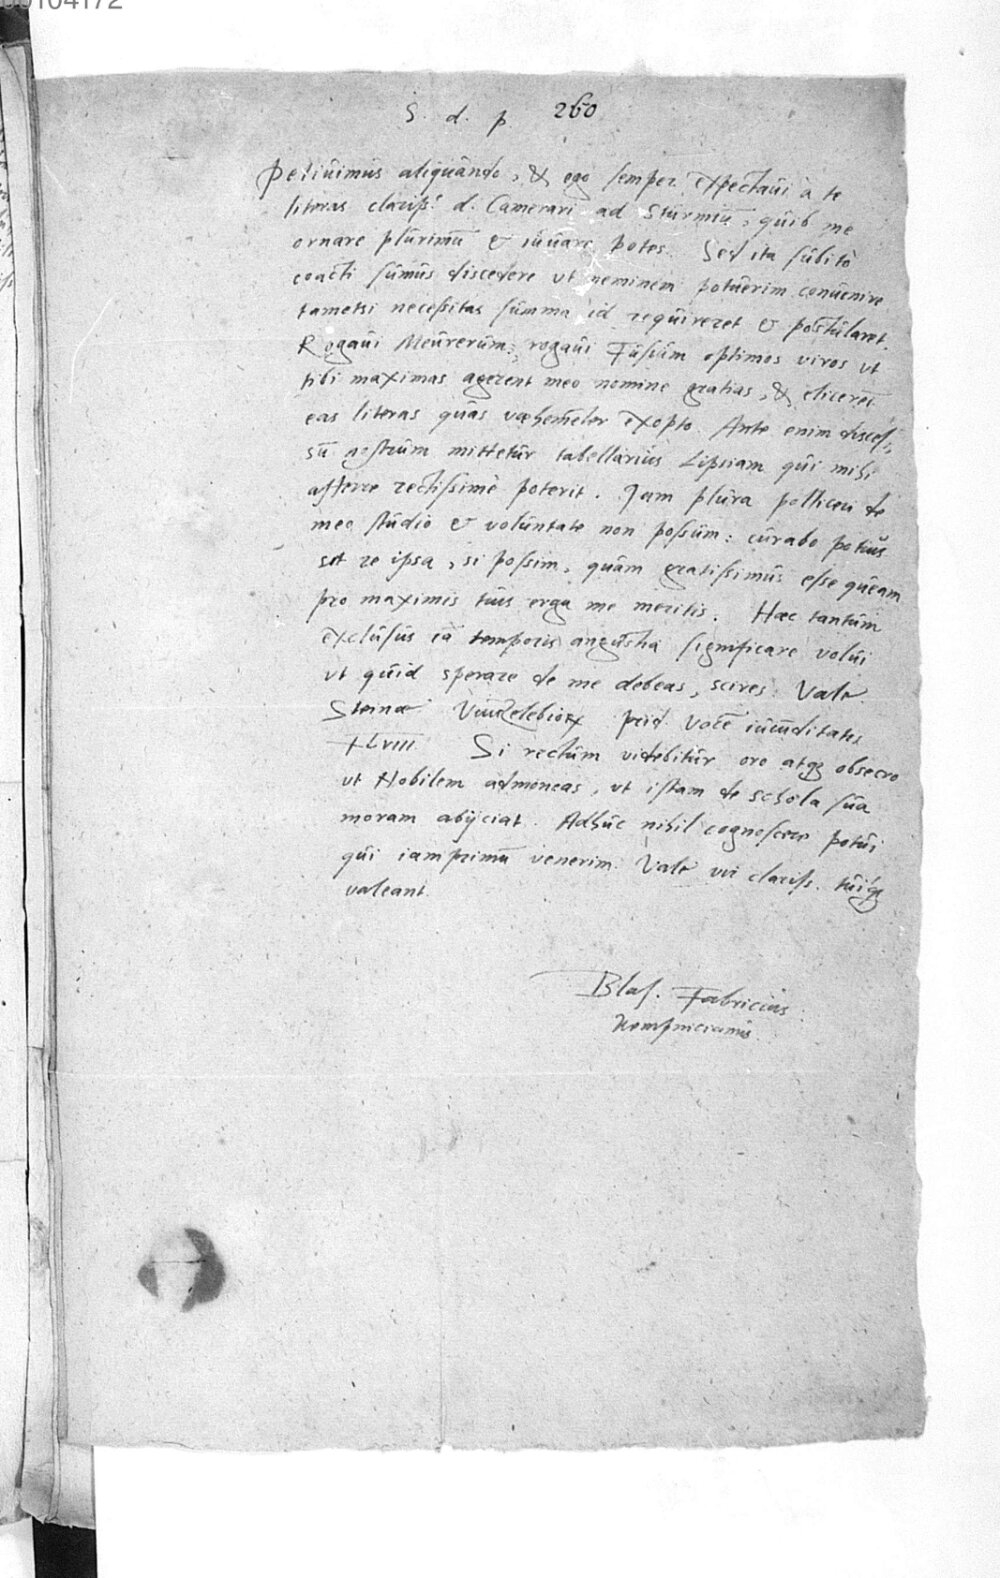 00104172
S. d. p. 260
Petiuimus aliquando, & ego semper expectaui à te
literas clariss. d. Camerari ad Sturmiū, quib me
ornare plurimū & iuuare potes. Sed ita subito
coacti sumus discedere vt neminem potuerim conuenire
tametsi necessitas summa id requireret & postularet.
Rogaui Meurerum, rogaui Fusium optimos viros vt
tibi maximas agerent meo nomine gratias, & elicerēt
eas literas quas vehemēter exopto. Ante enim disces-
sū nostrum mittetur tabellarius Lipsiam qui mihi
afferre rectissimè poterit. Jam plura polliceri de
meo studio & voluntate non possum: curabo potius
ut re ipsa, si possim, quàm gratissimus esse queam
pro maximis tuis erga me meritis. Haec tantùm
exclusus iā temporis angustia significare volui
vt quid sperare de me debeas, scires. Vale
prid.
XLVIII Si rectum videbitur oro atq obsecro
vt Nobilem admoneas, vt istam de schola sua
moram abijciat. Adhuc nihil cognoscere potui
qui iam primū venerim. Vale vir clariss. tuiq
valeant.
Blas. Fabricius